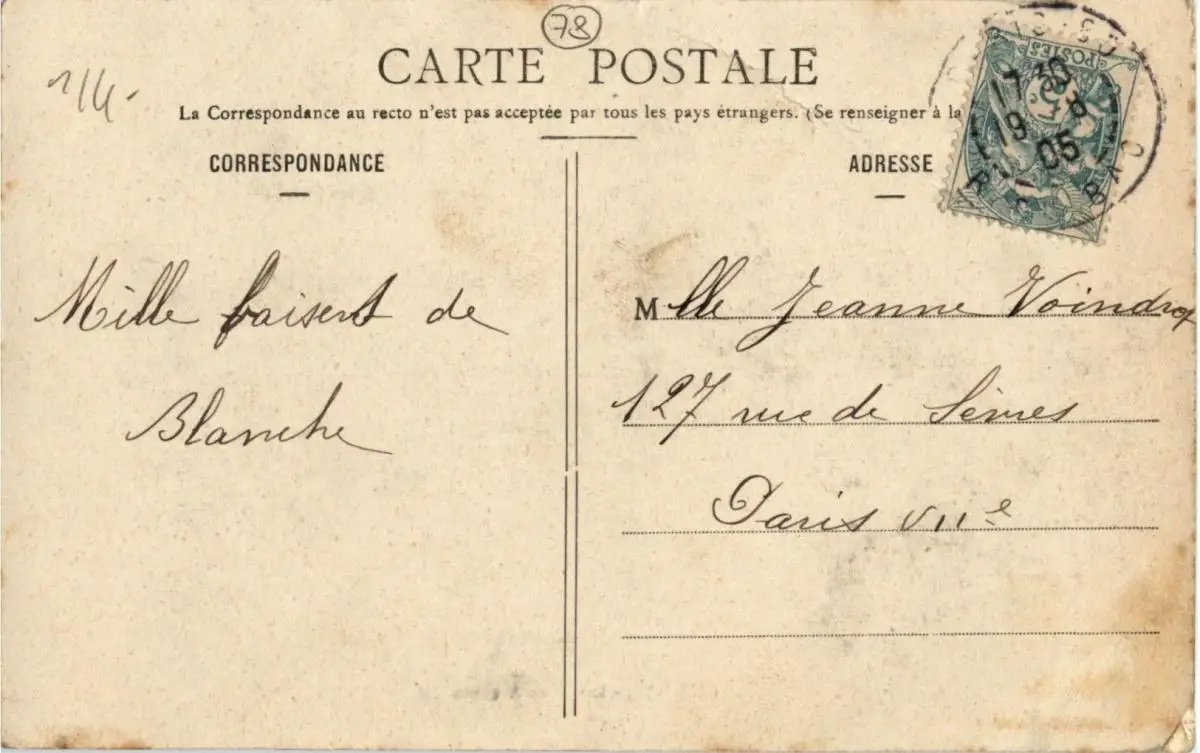 78
CARTE POSTALE
1/4.
La Correspondance au recto n'est pas acceptée par tous les pays étrangers. (Se renseigner à la
CORRESPONDANCE
ADRESSE
POSTES
17 30
19 8
05
BAC
Mille baisers de
Blanche
Mlle Jeanne
127 rue de Sèvres
Paris VIIe